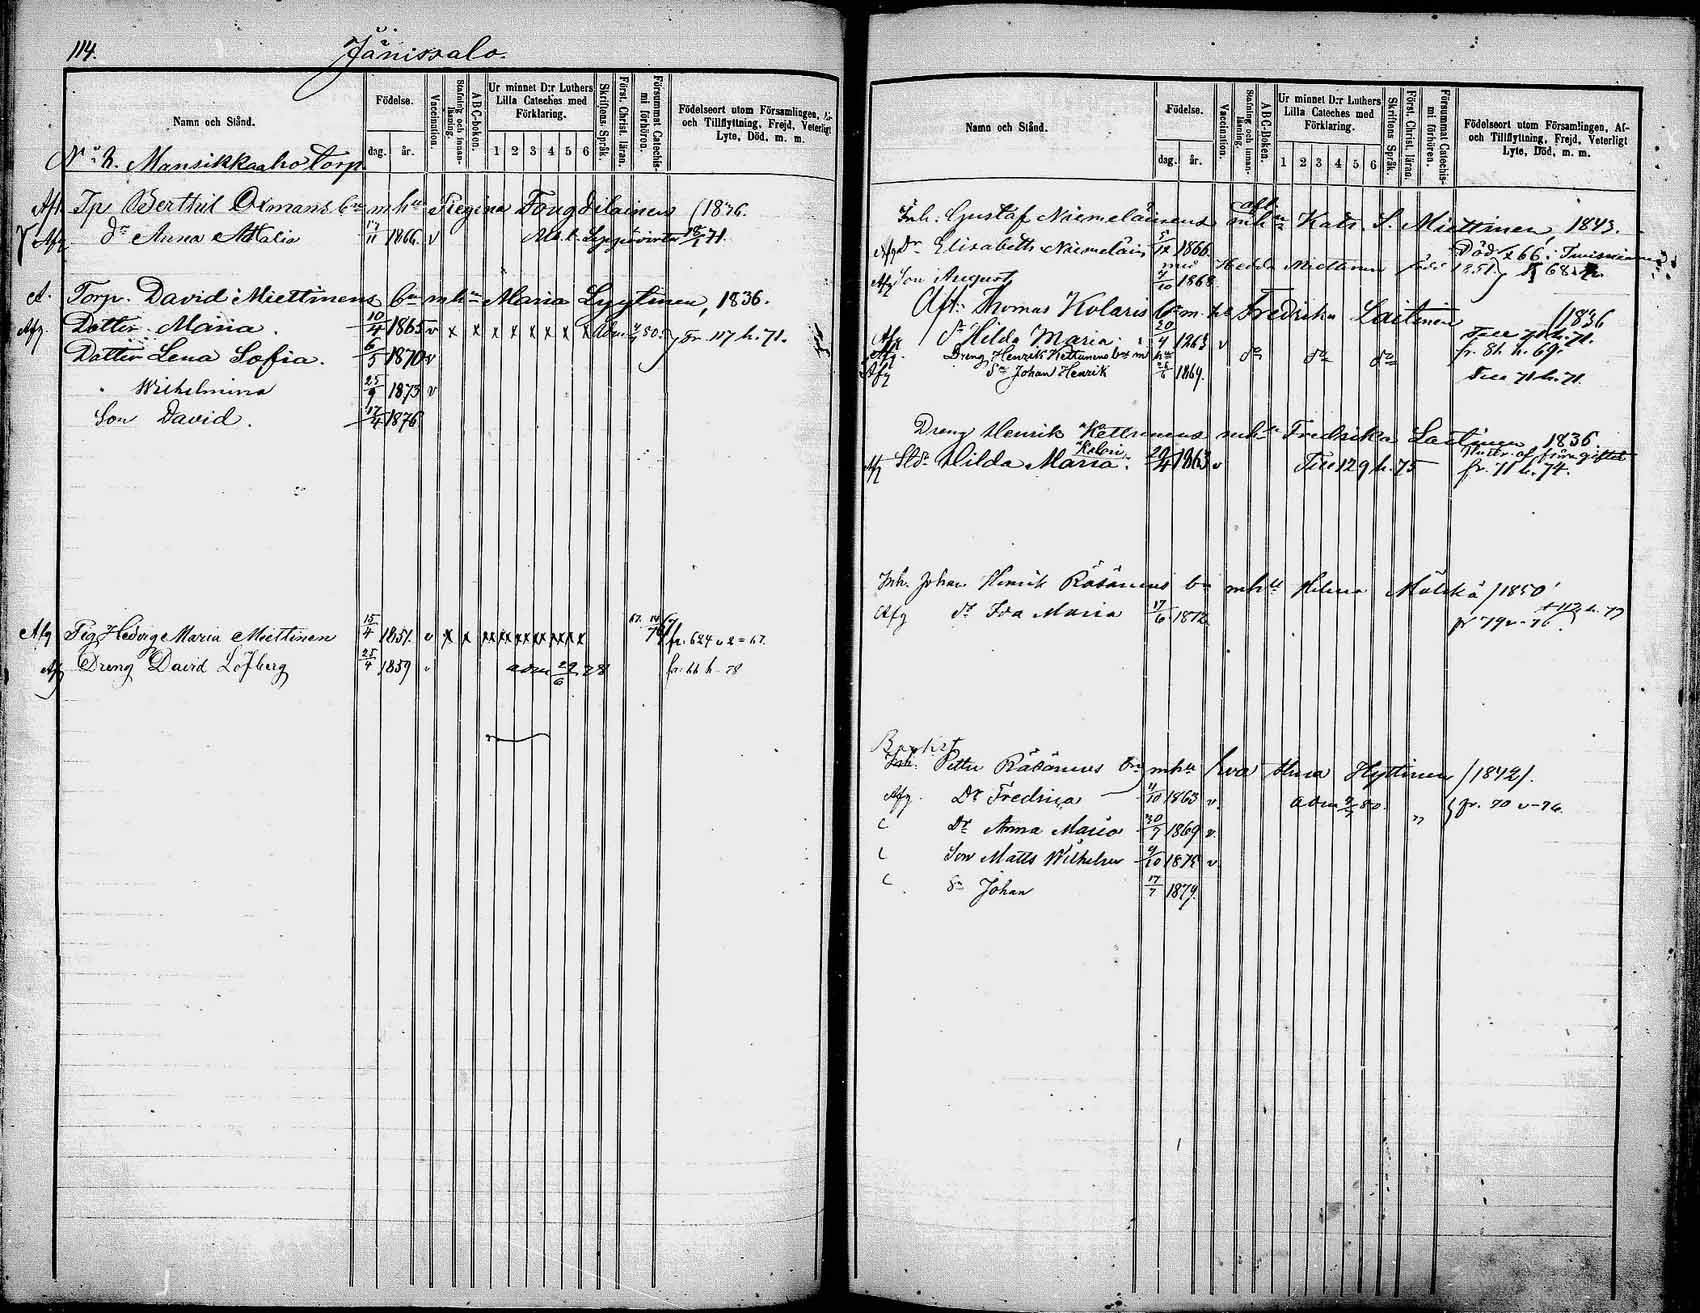 114.
Jänissalo.
Namn och Stånd.
Födelse.
dag. år.
Vaccination.
Stafning och innan-läsning.
ABC-boken.
Ur minnet D:r Luthers
Lilla Cateches med
Förklaring.
1 2 3 4 5 6
Skriftens Språk.
Först. Christ. läran.
Försummat Catechis-mi förhören.
Födelseort utom Församlingen, Af-
och Tillflyttning, Frejd, Veterligt
Lyte, Död, m. m.
Mansikkaaho Torp.
Tp Berthil Oxmans mhu Regina Fougdilainen /1836.
Afg. dr Anna Natalia 1866. v Leppävirta 71.
A. Torp. David Miettinens bn mhu Maria Lyytinen, 1836.
Afg. Dotter Maria. 10/4 1865 v x x x x x x x x adm 80. fr. 117 h. 71.
Dotter Lena Sofia. 6/5 1870 v
" Wilhelmina 25/9 1873 v
Son David. 17/4 1876
Afg. Pig. Hedvig Maria Miettinen 15/4 1851. v x x fr. 624 v 2 = 67.
Afg Dreng David Löfberg 25/4 1859 adm 29/6 78 fr. 66 h - 78
Namn och Stånd.
Födelse.
dag. år.
Vaccination.
Stafning och innan-läsning.
ABC-Boken.
Ur minnet D:r Luthers
Lilla Cateches med
Förklaring.
1 2 3 4 5 6
Skriftens Språk.
Först. Christ. läran.
Försummat Catechis-mi förhören.
Födelseort utom Församlingen, Af-
och Tillflyttning, Frejd, Veterligt
Lyte, Död, m. m.
Inh. Gustaf Niemeläinens afl. mhu Katr. S. Miettinen, 1843.
Afg Dr Elisabeth Niemeläin 5/12 1866. Död 66
Afg Son August 4/10 1868. Hedda Miettinen född 1851
Aft. Thomas Kolaris bn m hu Fredrika Laitinen /1836
Afg dr Hilda Maria. 20/4 1863 v Till 71 h. 71.
Afg. Dreng Henrik Kettunens bn m hu do do do fr. 81 h. 69.
Afg Sn Johan Henrik 1869. Till 71 h. 71.
Dreng Henrik Kettunens mhu Fredrika Laitinen, 1836.
Kolari
Afg Std. Hilda Maria. 20/4 1863 v Till 129 h. 75 fr. 71 h. 74.
Inh. Johan Henrik Räsänens bn mhu Helena Mälskä /1850
Afg dr Ida Maria 17/6 1872 fr 79 v - 76
Baptist
Inh. Petter Räsänens bn mhu Eva Anna Hyttinen /1842/.
Afg. Dr Fredrica 4/10 1863 v. adm 80. fr. 70 v - 76
Dr Anna Maria 30/7 1869 v.
Son Matts Wilhelm 9/10 1875 v.
Sn Johan 17/7 1879.